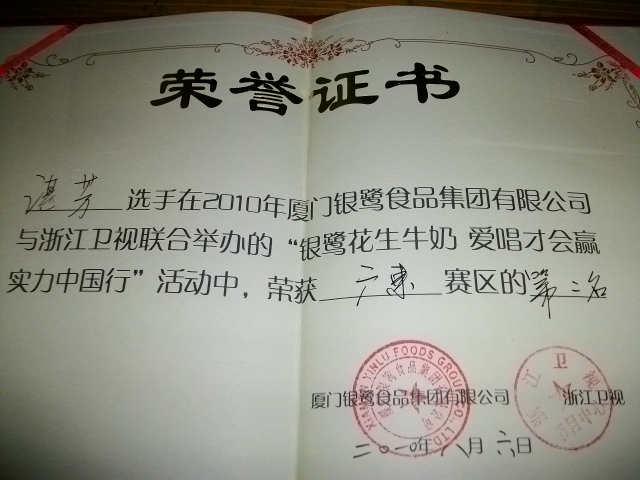 荣誉证书
谌芳 选手在2010年厦门银鹭食品集团有限公司
与浙江卫视联合举办的“银鹭花生牛奶 爱唱才会赢
实力中国行”活动中，荣获 广东 赛区的第二名
厦门银鹭食品集团有限公司 浙江卫视
二〇一〇年八月六日
XIAMEN YINLU FOODS GROUP CO., LTD.
浙江卫视